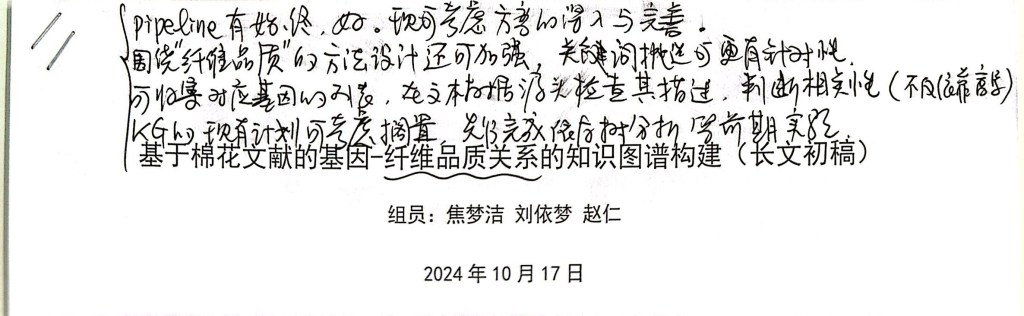 pipeline有始、终，好。现可考虑方案的深入与完善。
围绕"纤维品质"的方法设计还可加强，关键词挑选可更有针对性.
可收集对应基因的列表，在文本数据源头检查其描述，判断相关性（不仅依靠
KG的现有计划可考虑搁置，先做完成依存树分析等前期实验.
基于棉花文献的基因-纤维品质关系的知识图谱构建（长文初稿）
组员：焦梦洁 刘依梦 赵仁
2024年10月17日